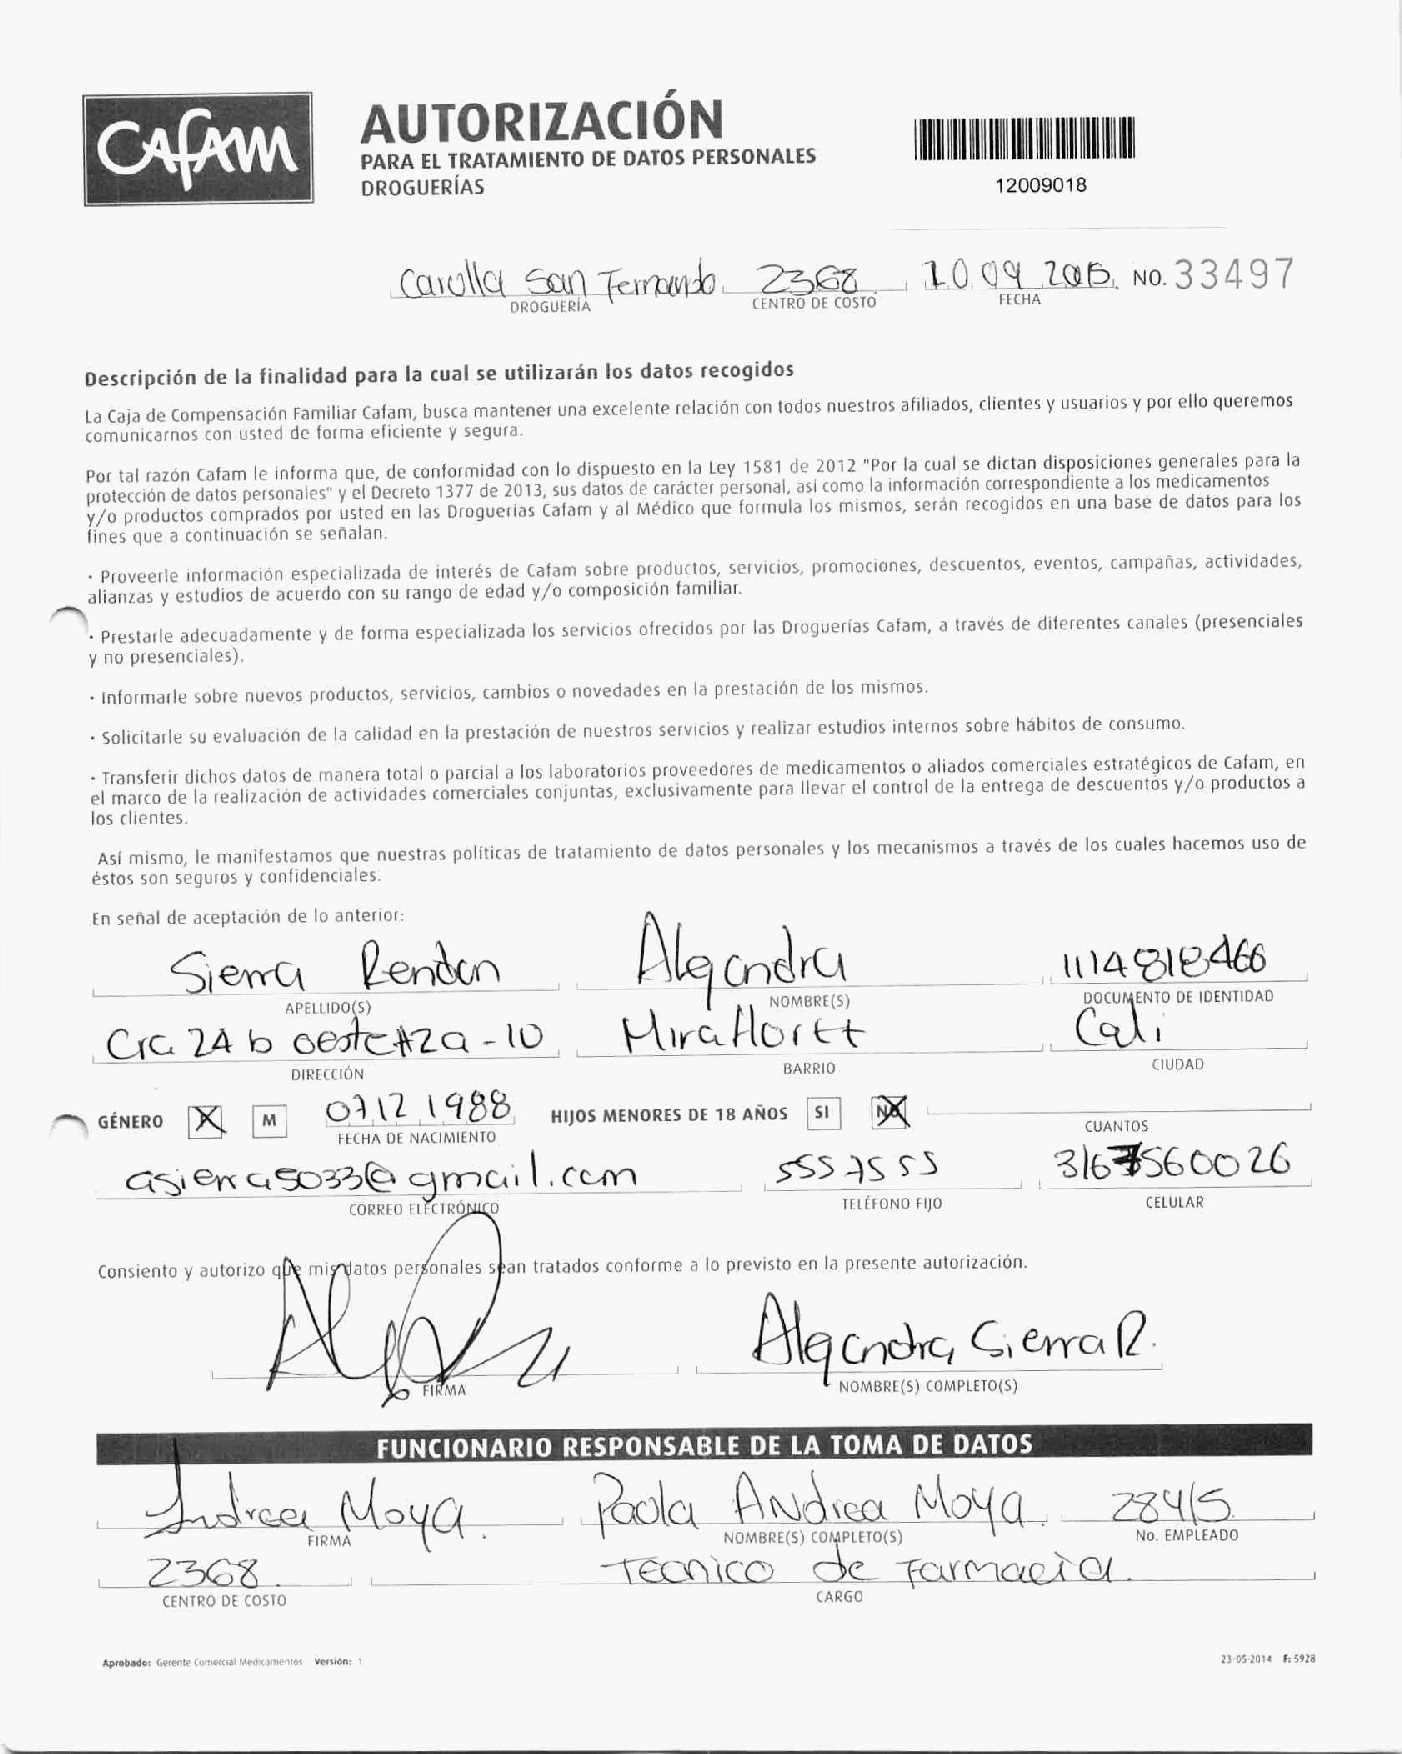 CAFAM
AUTORIZACIÓN
PARA EL TRATAMIENTO DE DATOS PERSONALES
DROGUERÍAS
12009018
Carulla San Fernando 2368 10 09 2015 NO. 33497
DROGUERÍA CENTRO DE COSTO FECHA
Descripción de la finalidad para la cual se utilizarán los datos recogidos
La Caja de Compensación Familiar Cafam, busca mantener una excelente relación con todos nuestros afiliados, clientes y usuarios y por ello queremos
comunicarnos con usted de forma eficiente y segura.
Por tal razón Cafam le informa que, de conformidad con lo dispuesto en la Ley 1581 de 2012 "Por la cual se dictan disposiciones generales para la
protección de datos personales" y el Decreto 1377 de 2013, sus datos de carácter personal, así como la información correspondiente a los medicamentos
y/o productos comprados por usted en las Droguerías Cafam y al Médico que formula los mismos, serán recogidos en una base de datos para los
fines que a continuación se señalan.
· Proveerle información especializada de interés de Cafam sobre productos, servicios, promociones, descuentos, eventos, campañas, actividades,
alianzas y estudios de acuerdo con su rango de edad y/o composición familiar.
· Prestarle adecuadamente y de forma especializada los servicios ofrecidos por las Droguerías Cafam, a través de diferentes canales (presenciales
y no presenciales).
· Informarle sobre nuevos productos, servicios, cambios o novedades en la prestación de los mismos.
· Solicitarle su evaluación de la calidad en la prestación de nuestros servicios y realizar estudios internos sobre hábitos de consumo.
· Transferir dichos datos de manera total o parcial a los laboratorios proveedores de medicamentos o aliados comerciales estratégicos de Cafam, en
el marco de la realización de actividades comerciales conjuntas, exclusivamente para llevar el control de la entrega de descuentos y/o productos a
los clientes.
Así mismo, le manifestamos que nuestras políticas de tratamiento de datos personales y los mecanismos a través de los cuales hacemos uso de
éstos son seguros y confidenciales.
En señal de aceptación de lo anterior:
Sierra Rendon Alejandra 1114818466
APELLIDO(S) NOMBRE(S) DOCUMENTO DE IDENTIDAD
Cra 24 b oeste #2a - 10 Cali
DIRECCIÓN BARRIO CIUDAD
GÉNERO X M 07 12 1988 HIJOS MENORES DE 18 AÑOS SI NO X
FECHA DE NACIMIENTO CUANTOS
asierra5033@gmail.com 5557555 3167560026
CORREO ELECTRÓNICO TELÉFONO FIJO CELULAR
Consiento y autorizo que mis datos personales sean tratados conforme a lo previsto en la presente autorización.
Alejandra Sierra R.
FIRMA NOMBRE(S) COMPLETO(S)
FUNCIONARIO RESPONSABLE DE LA TOMA DE DATOS
Andrea Moya. Paola Andrea Moya. 28415
FIRMA NOMBRE(S) COMPLETO(S) No. EMPLEADO
2368 Tecnico de Farmacia.
CENTRO DE COSTO CARGO
Aprobado: Gerente Comercial Medicamentos Versión: 1 23-05-2014 F: 5928